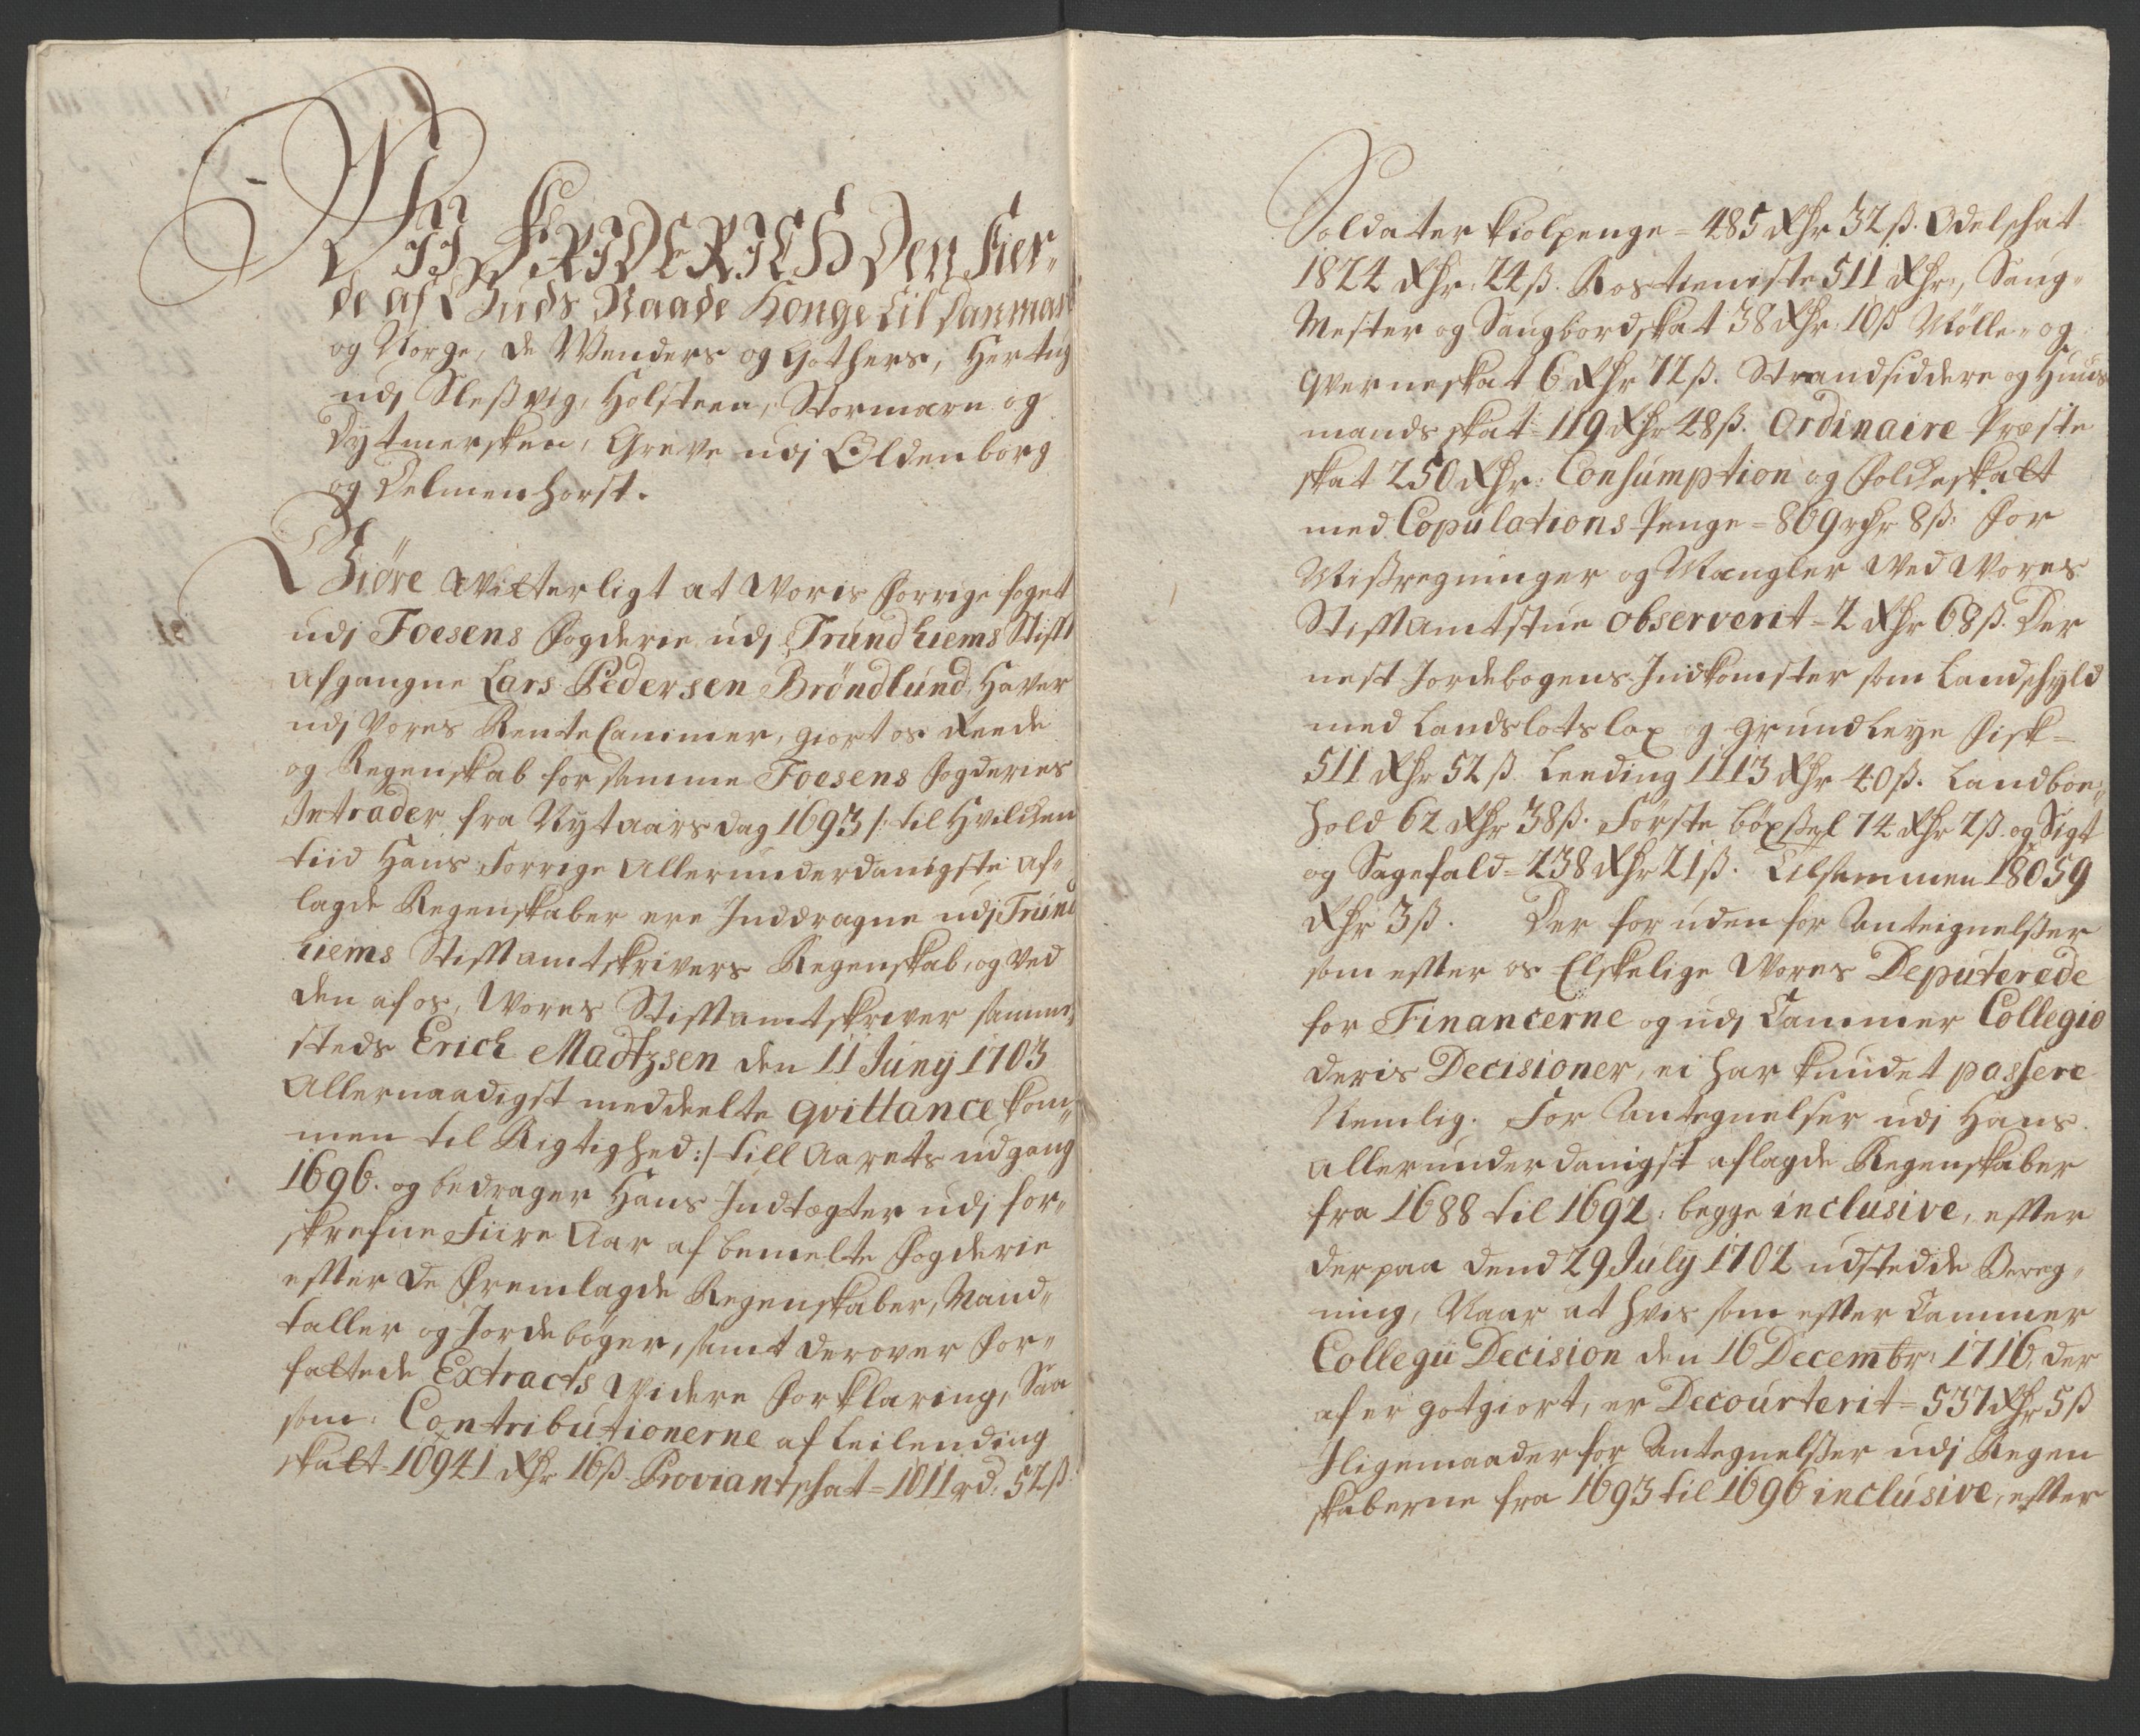 Wii FRIDERICH Den Fier-
de af Guds Naade Konge til Danmark
og Norge, de Wenders og Gothers, Hertug
udj Sleßvig, Holsteen, Stormarn og
Dytmersken, Greve udj Oldenborg
og Delmenhorst.
Giöre Witterligt at Woris forrige foget
udj Foesens fogderie udj Trundhiems Stifft
afgangne Lars Pedersen Bröndlund, Haver
udj Vores Rente Cammer, giort os Reede
og Regenskab for samme Foesens fogderies
Intrader fra Nytaarsdag 1693 /: til Hvilchen
tiid Hans forrige allerunderdanigste af-
lagde Regenskaber ere Inddragne udj Trund
hiems Stifftamtskrivers Regenskab, og ved
den af os, Wores Stifftamtskriver samme-
steds Erich Madtzsen den 11 Juny 1703
allernaadigst meddeelte qvittance kom-
men til Rigtighed :/ till Aarets udgang
1696. og bedrager Hans Indtægter udj for-
skrefne Fiire Aar af bemelte fogderie
effter de fremlagde Regenskaber, Mand-
taller og Jordebøger, samt derover for-
fattede Extracts videre forklaring, Saa
som: Contributionerne af Leilending
skatt= 10941 Rhr 16ß Proviantschat= 1011 rd: 52ß
Soldater kiolpenge= 485 Rhr 32ß. Odelschat
1824 Rhr: 24ß. Rostieniste 511 Rhr:, Saug-
Mester og Saugbordskat 38 Rhr: 10ß Mølle- og
qverneskat 6 Rhr 72ß. Strandsiddere og Huus
mandsskat= 119 Rhr 48ß. Ordinaire Præste
skat 250 Rhr: Consumption og folcheskatt
med Copulations Penge= 869 rhr 8ß: for
Misregninger og Mangler ved Wores
Stifftamtstue observerit= 2 Rhr 68ß. Der
nest Jordebogens Indkomster som Landschyld
med Landslotslax og grundleye fisk=
511 Rhr 52ß. Leeding 1113 Rhr 40ß. Landboe-
hold 62 Rhr 38ß. Förste böxßel 74 Rhr 2ß. og Sigt
og Sagefald= 238 Rhr 21ß. Tilsammen 18059
Rhr 3ß. Der foruden for Anteignelßer
som effter os Elskelige Wores Deputerede
for Financerne og udj Cammer Collegio
deris Decisioner, ei har kundet passere
Nemlig. For Antegnelser udj Hans
allerunderdanigst aflagde Regenskaber
fra 1688 til 1692: begge inclusive, effter
derpaa dend 29 July 1702 udstedde Bereg-
ning, Naar at hvis som effter Cammer
Collegii Decision den 16 Decembr: 1716, der
af er gotgiort, er Decourterit= 537 Rhr 5ß
Jligemaader for Antegnelßer udj Regen
skaberne fra 1693 til 1696 inclusive, effter